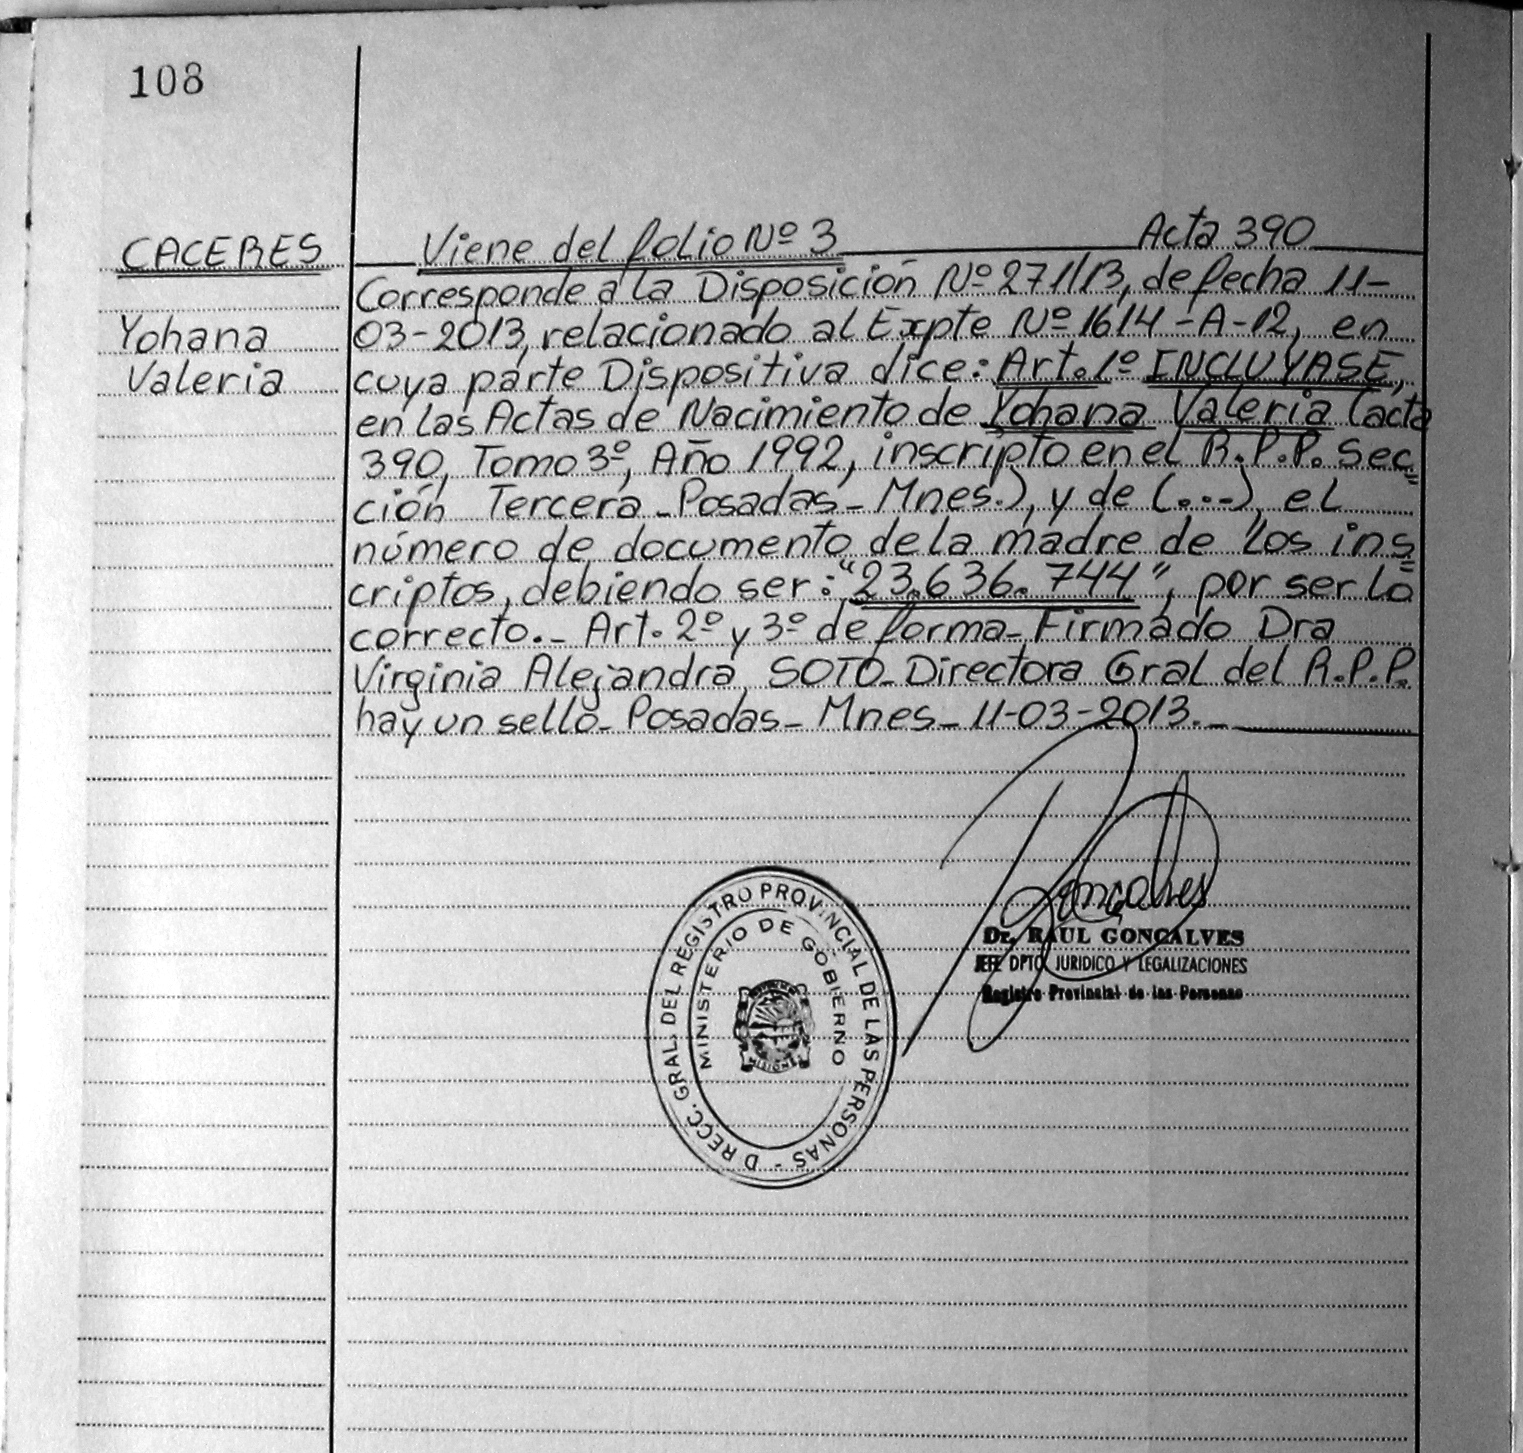 108
CACERES
Yohana
Valeria
Viene del folio Nº 3 Acta 390
Corresponde a la Disposición Nº 271/13, de fecha 11-
03-2013, relacionado al Expte Nº 1614-A-12, en
cuya parte Dispositiva dice: Art. 1º INCLUYASE,
en las Actas de Nacimiento de Yohana Valeria (acta
390, Tomo 3º, Año 1992, inscripto en el R.P.P. Sec=
ción Tercera_Posadas_Mnes.), y de (...-), el
número de documento de la madre de los ins=
criptos, debiendo ser: "23.636.744", por ser lo
correcto._ Art. 2º y 3º de forma_Firmado Dra
Virginia Alejandra, SOTO_Directora Gral del R.P.P.
hay un sello_Posadas_Mnes_11-03-2013._
Goncalves
Dr. RAUL GONCALVES
JEFE DPTO JURIDICO Y LEGALIZACIONES
Registro Provincial de las Personas
D RECC. GRAL. DEL REGISTRO PROVINCIAL DE LAS PERSONAS -
MINISTERIO DE GOBIERNO
MISIONES